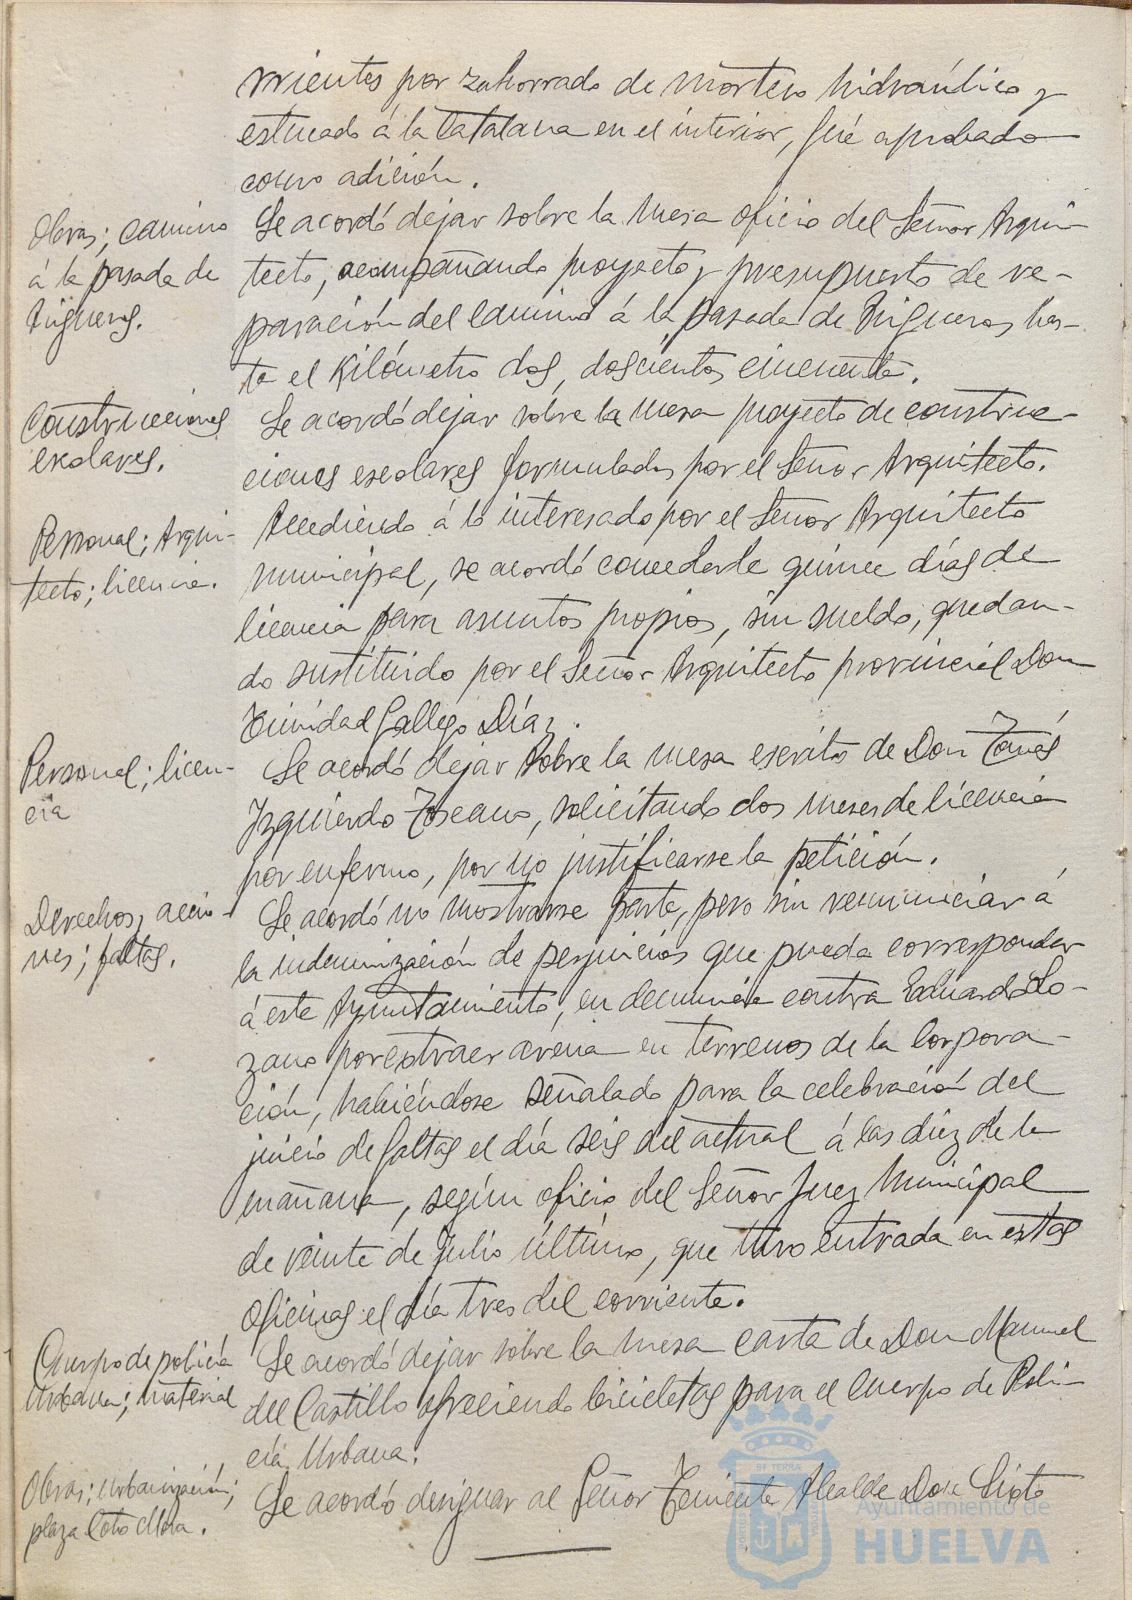 rrientes por zahorrado de mortero hidráulico y
estucado á la Catalana en el interior, fué aprobado
como adición.
Obras; camino
á la pasada de
Trigueros.
Se acordó dejar sobre la mesa oficio del Señor Arqui-
tecto, acompañando proyecto y presupuesto de re-
paración del camino á la pasada de Trigueros has-
ta el Kilómetro dos, doscientos cincuenta.
Construcciones
escolares.
Se acordó dejar sobre la mesa proyecto de construc-
ciones escolares formulados por el Señor Arquitecto.
Personal; Arqui-
tecto; licencia.
Accediendo á lo interesado por el Señor Arquitecto
municipal, se acordó concederle quince días de
licencia para asuntos propios, sin sueldo, quedan-
do sustituido por el Señor Arquitecto provincial Don
Trinidad Gallego Díaz.
Personal; licen-
cia
Se acordó dejar sobre la mesa escrito de Don
Izquierdo Toscano, solicitando dos meses de licencia
por enfermo, por no justificarse la petición.
Derechos; accio-
nes; faltas.
Se acordó no mostrarse parte, pero sin renunciar á
la indemnización de perjuicios que pueda corresponder
á este Ayuntamiento, en denuncia contra Eduardo Lo-
zano por extraer arena en terrenos de la Corpora-
ción, habiéndose señalado para la celebración del
juicio de faltas el día seis del actual á las diez de la
mañana, según oficio del Señor Juez Municipal
de veinte de Julio último, que tuvo entrada en estas
Oficinas el día tres del corriente.
Cuerpo de policía
Urbana; material
Se acordó dejar sobre la mesa carta de Don Manuel
del Castillo ofreciendo bicicletas para el Cuerpo de Poli-
cía Urbana.
Obras; Urbanización;
plaza Coto Mora.
Se acordó designar al Señor Teniente Alcalde Don Sixto
Ayuntamiento de
HUELVA